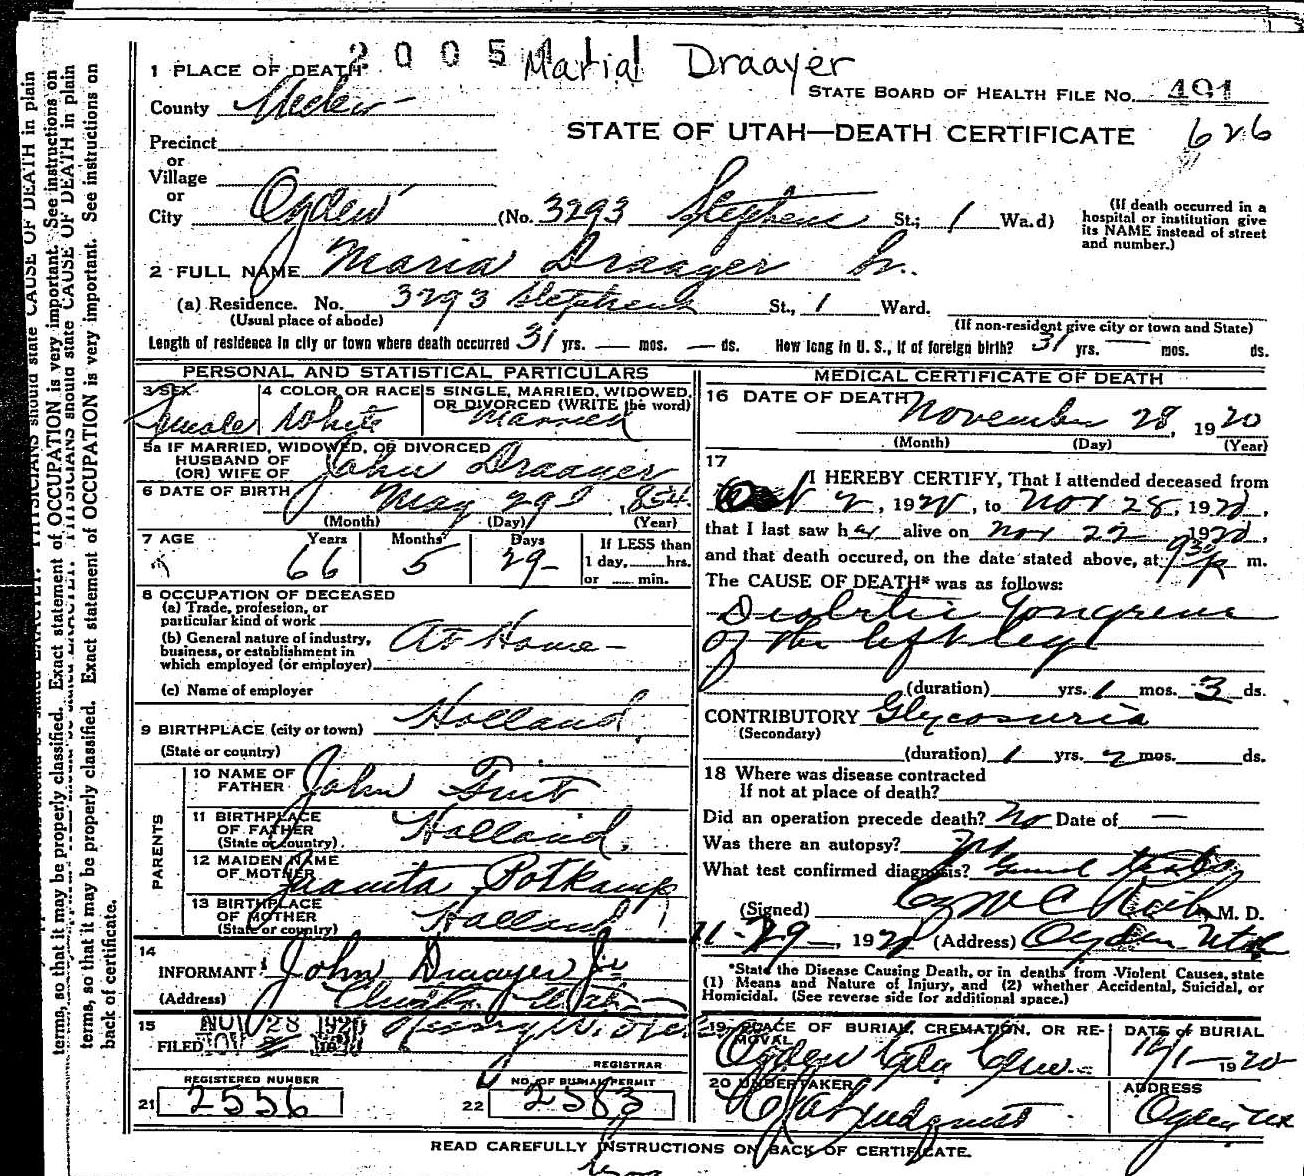 2005
Maria Draayer
1 PLACE OF DEATH
STATE BOARD OF HEALTH FILE No. 491
County Weber
STATE OF UTAH—DEATH CERTIFICATE 626
Precinct
or
Village
or
City Ogden (No. 3293 Stephens St.; 1 Ward)
(If death occurred in a hospital or institution give its NAME instead of street and number.)
2 FULL NAME Maria Draayer Sr.
(a) Residence. No. 3293 Stephens St., 1 Ward.
(Usual place of abode) (If non-resident give city or town and State)
Length of residence in city or town where death occurred 31 yrs. — mos. — ds. How long in U. S., if of foreign birth? 31 yrs. — mos. ds.
PERSONAL AND STATISTICAL PARTICULARS
3 SEX Female
4 COLOR OR RACE White
5 SINGLE, MARRIED, WIDOWED, OR DIVORCED (WRITE the word) Married
5a IF MARRIED, WIDOWED, OR DIVORCED
HUSBAND OF
(OR) WIFE OF John Draayer
6 DATE OF BIRTH May 29, 1854
(Month) (Day) (Year)
7 AGE Years 66 Months 5 Days 29
If LESS than
1 day, hrs.
or min.
8 OCCUPATION OF DECEASED
(a) Trade, profession, or
particular kind of work
(b) General nature of industry,
business, or establishment in
which employed (or employer) At Home
(c) Name of employer
9 BIRTHPLACE (city or town) Holland
(State or country)
PARENTS
10 NAME OF FATHER John
11 BIRTHPLACE OF FATHER Holland
(State or country)
12 MAIDEN NAME OF MOTHER Juanita Potkamp
13 BIRTHPLACE OF MOTHER Holland
(State or country)
14
INFORMANT John Draayer Jr
(Address) Utah
15
FILED NOV 28 1920 Henry W.
REGISTRAR
REGISTERED NUMBER
21 2556
NO. OF BURIAL PERMIT
22 2583
MEDICAL CERTIFICATE OF DEATH
16 DATE OF DEATH November 28, 1920
(Month) (Day) (Year)
17
I HEREBY CERTIFY, That I attended deceased from
Oct 2, 1920, to Nov 28, 1920,
that I last saw her alive on Nov 22 1920,
and that death occured, on the date stated above, at 9 30 p m.
The CAUSE OF DEATH* was as follows:
Diabetic Gangrene
of the left leg
(duration) yrs. 1 mos. 3 ds.
CONTRIBUTORY Glycosuria
(Secondary)
(duration) 1 yrs. 2 mos. ds.
18 Where was disease contracted
If not at place of death?
Did an operation precede death? No Date of —
Was there an autopsy? No
What test confirmed diagnosis?
(Signed) M. D.
11-29-, 1920 (Address) Ogden Utah
*State the Disease Causing Death, or in deaths from Violent Causes, state
(1) Means and Nature of Injury, and (2) whether Accidental, Suicidal, or
Homicidal. (See reverse side for additional space.)
19 PLACE OF BURIAL, CREMATION, OR REMOVAL
Ogden City Cem.
DATE of BURIAL
12/1-1920
20 UNDERTAKER
Lindquist
ADDRESS
Ogden Ut
READ CAREFULLY INSTRUCTIONS ON BACK OF CERTIFICATE.